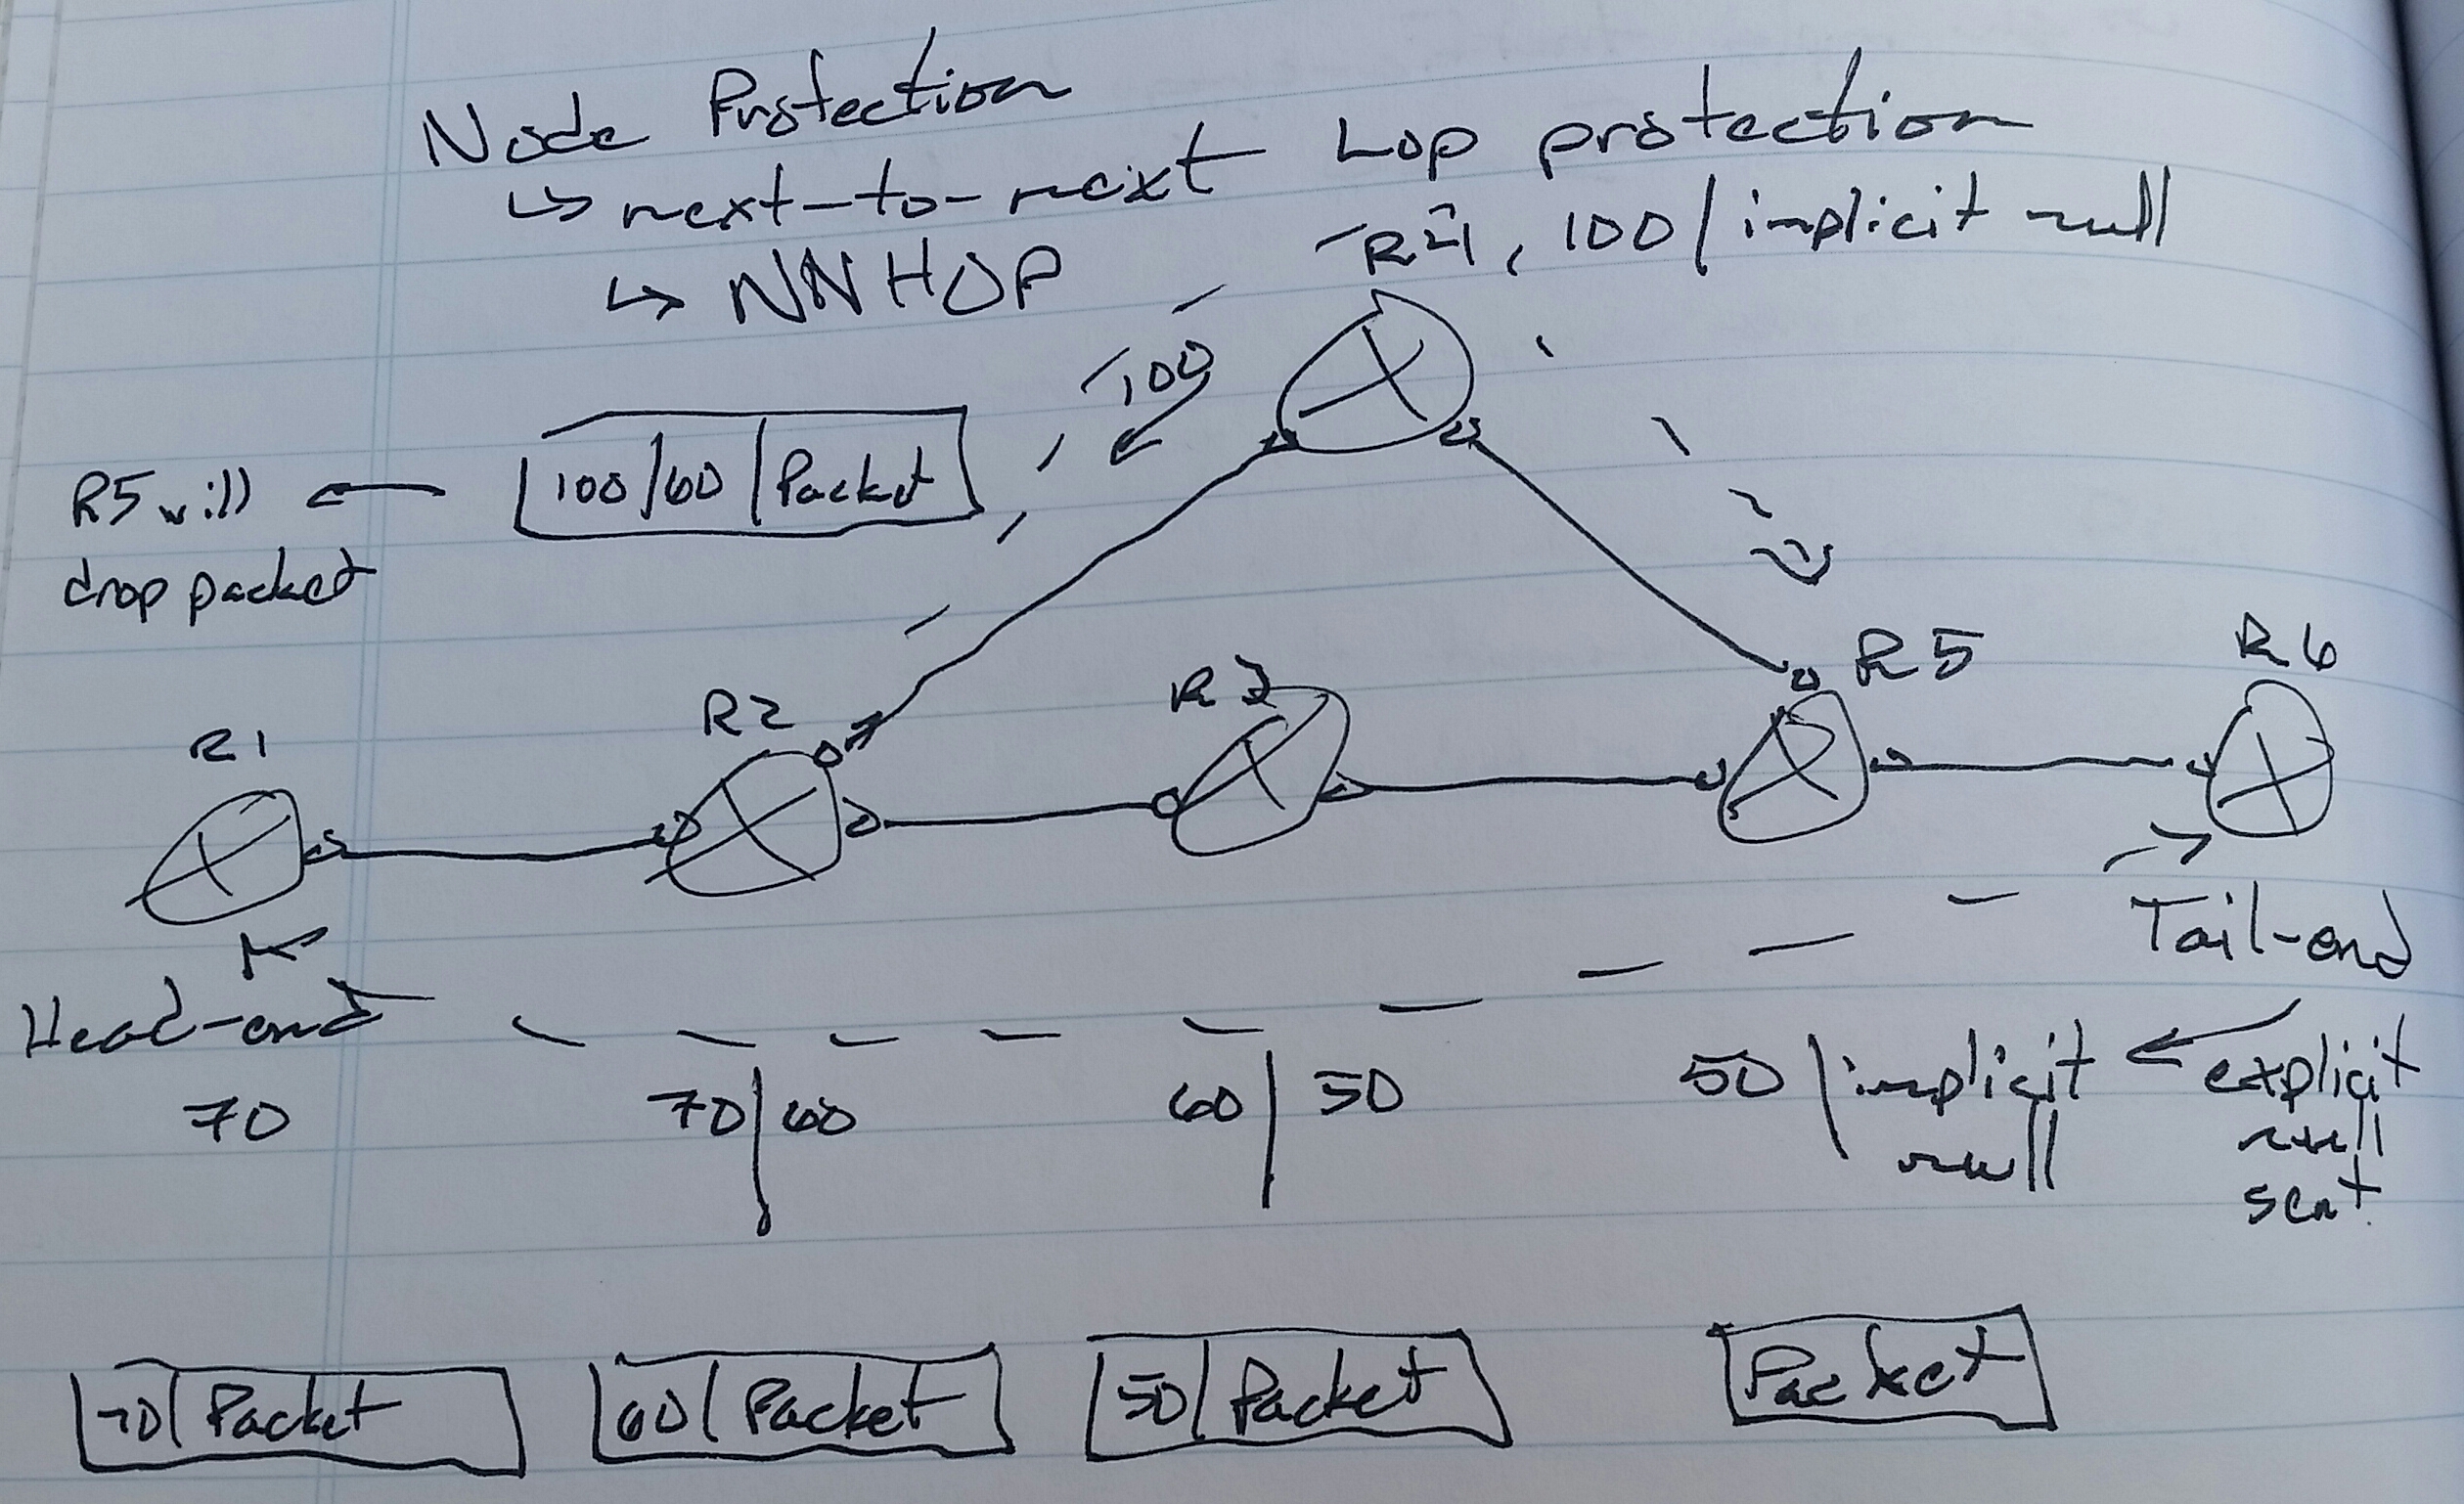 Node Protection
↳ next-to-next hop protection
↳ NNHOP
R4, 100 | implicit null
100
100 | 60 | Packet
R5 will
drop packet
R1
R2
R3
R5
R6
Head-end
Tail-end
70
70 | 60
60 | 50
50 | implicit
null
explicit
null
sent
70 | Packet
60 | Packet
50 | Packet
Packet